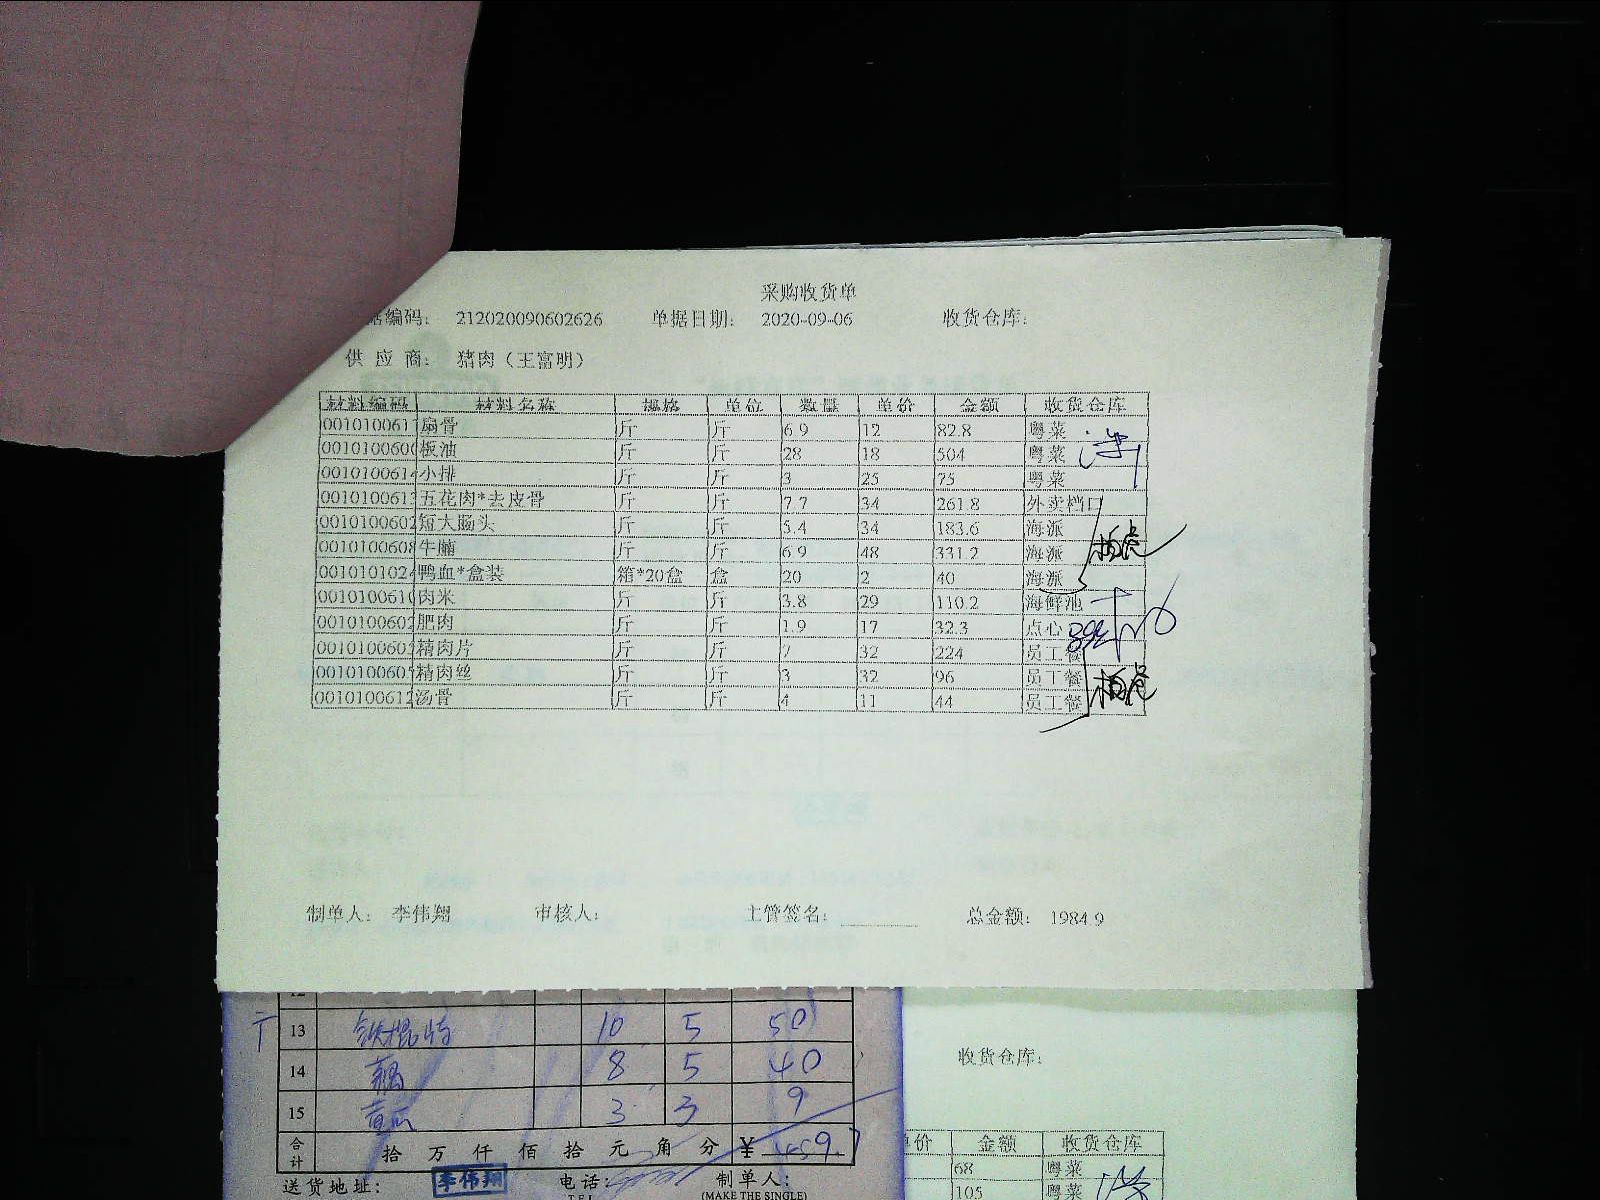 采购收货单
据编码： 212020090602626 单据日期： 2020-09-06 收货仓库：
供 应 商： 猪肉（王富明）
材料编码 材料名称 规格 单位 数量 单价 金额 收货仓库
001010061 扇骨 斤 斤 6.9 12 82.8 粤菜
001010060 板油 斤 斤 28 18 504 粤菜
001010061 小排 斤 斤 3 25 75 粤菜
001010061 五花肉*去皮骨 斤 斤 7.7 34 261.8 外卖档口
0010100602 短大肠头 斤 斤 5.4 34 183.6 海派
0010100608 牛腩 斤 斤 6.9 48 331.2 海派
001010102 鸭血*盒装 箱*20盒 盒 20 2 40 海派
001010061 肉米 斤 斤 3.8 29 110.2 海鲜池
0010100602 肥肉 斤 斤 1.9 17 32.3 点心
001010060 精肉片 斤 斤 7 32 224 员工餐
001010060 精肉丝 斤 斤 3 32 96 员工餐
001010061 汤骨 斤 斤 4 11 44 员工餐
制单人： 李伟翔 审核人： 主管签名： 总金额： 1984.9
12
13 10 5 50
14 藕 8 5 40
15 黄瓜 3 3 9
合计 拾 万 仟 佰 拾 元 角 分 ￥ 459
送货地址： 李伟翔 电话： 制单人：
TEL (MAKE THE SINGLE)
收货仓库：
单价 金额 收货仓库
68 粤菜
105 粤菜